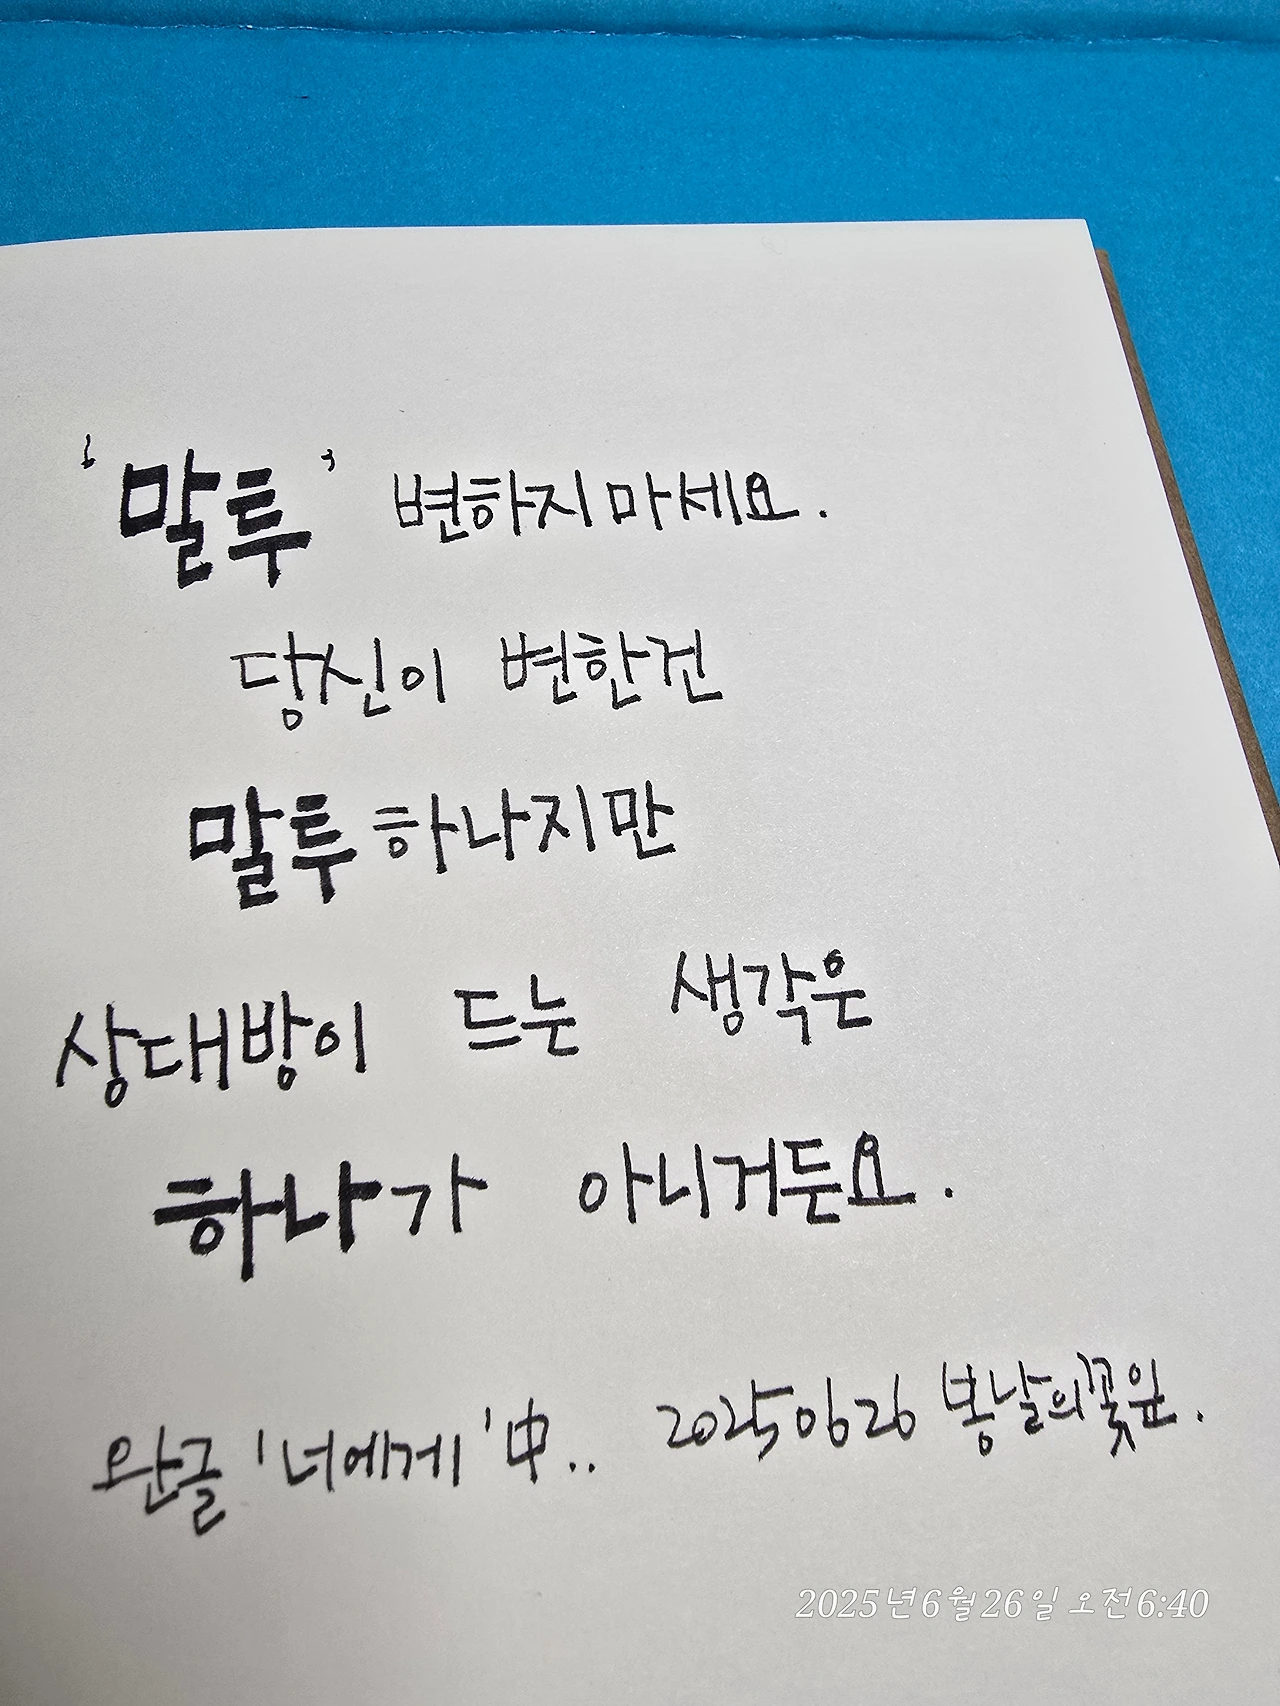 '말투' 변하지 마세요.
당신이 변한건
말투 하나지만
상대방이 드는 생각은
하나가 아니거든요.
완글 '너에게' 中.. 20250626 봄날의꽃잎.
2025년 6월 26일 오전 6:40